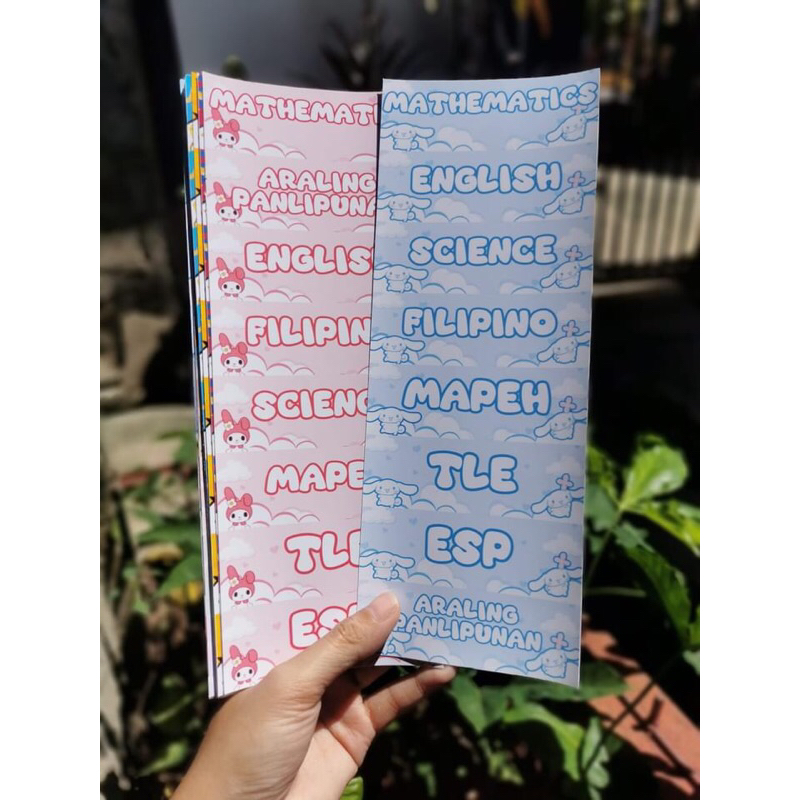 MATHEMATI
ARALING
PANLIPUNA
ENGLIS
FILIPIN
SCIENC
MAPE
TLE
ES
MATHEMATICS
ENGLISH
SCIENCE
FILIPINO
MAPEH
TLE
ESP
ARALING
PANLIPUNAN